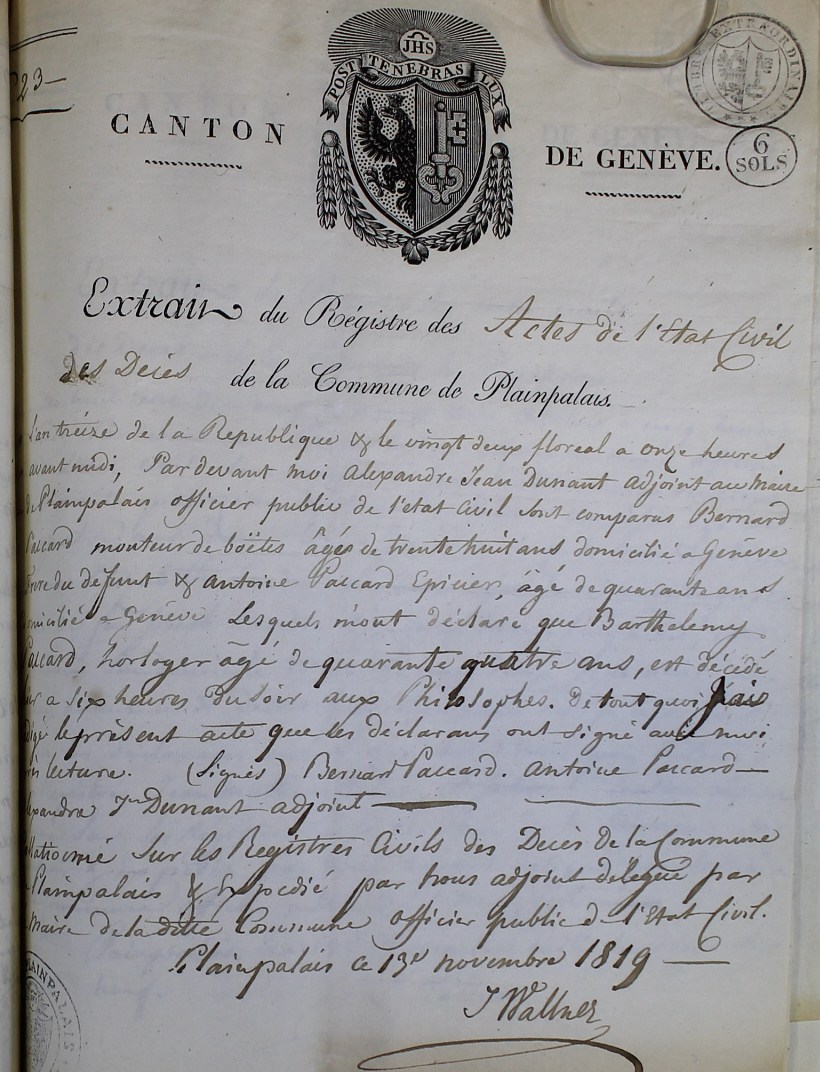 23
JHS
POST TENEBRAS LUX
TIMBRE EXTRAORDINAIRE
CANTON DE GENÈVE.
6
SOLS
Extrait du Régistre des Actes de l'Etat Civil
des Décès de la Commune de Plainpalais.
L'an treize de la Republique & le vingt deux floreal a onze heures
avant midi, Par devant moi Alexandre Jean Dunant adjoint au Maire
de Plainpalais officier public de l'etat Civil sont comparus Bernard
Paccard monteur de boëtes âgé de trente huit ans domicilié a Genêve
frere du défunt & Antoine Paccard Epicier, âgé de quarante ans
domicilié a Genêve Lesquels m'ont déclaré que Barthelemy
Paccard, horloger âgé de quarante quatre ans, est décédé
hier a six heures du soir aux Philosophes. De tout quoi j'ais
rédigé le présent acte que les déclarans ont signé avec moi
après lecture. (Signés) Bernard Paccard. Antoine Paccard
Alexandre Jn Dunant adjoint
Collationné sur les Registres Civils des Decès de la Commune
de Plainpalais & Expedié par nous adjoint délégué par
le Maire de la ditte Commune officier public de l'Etat Civil.
Plainpalais ce 13e novembre 1819
J Wallner
PLAINPALAIS